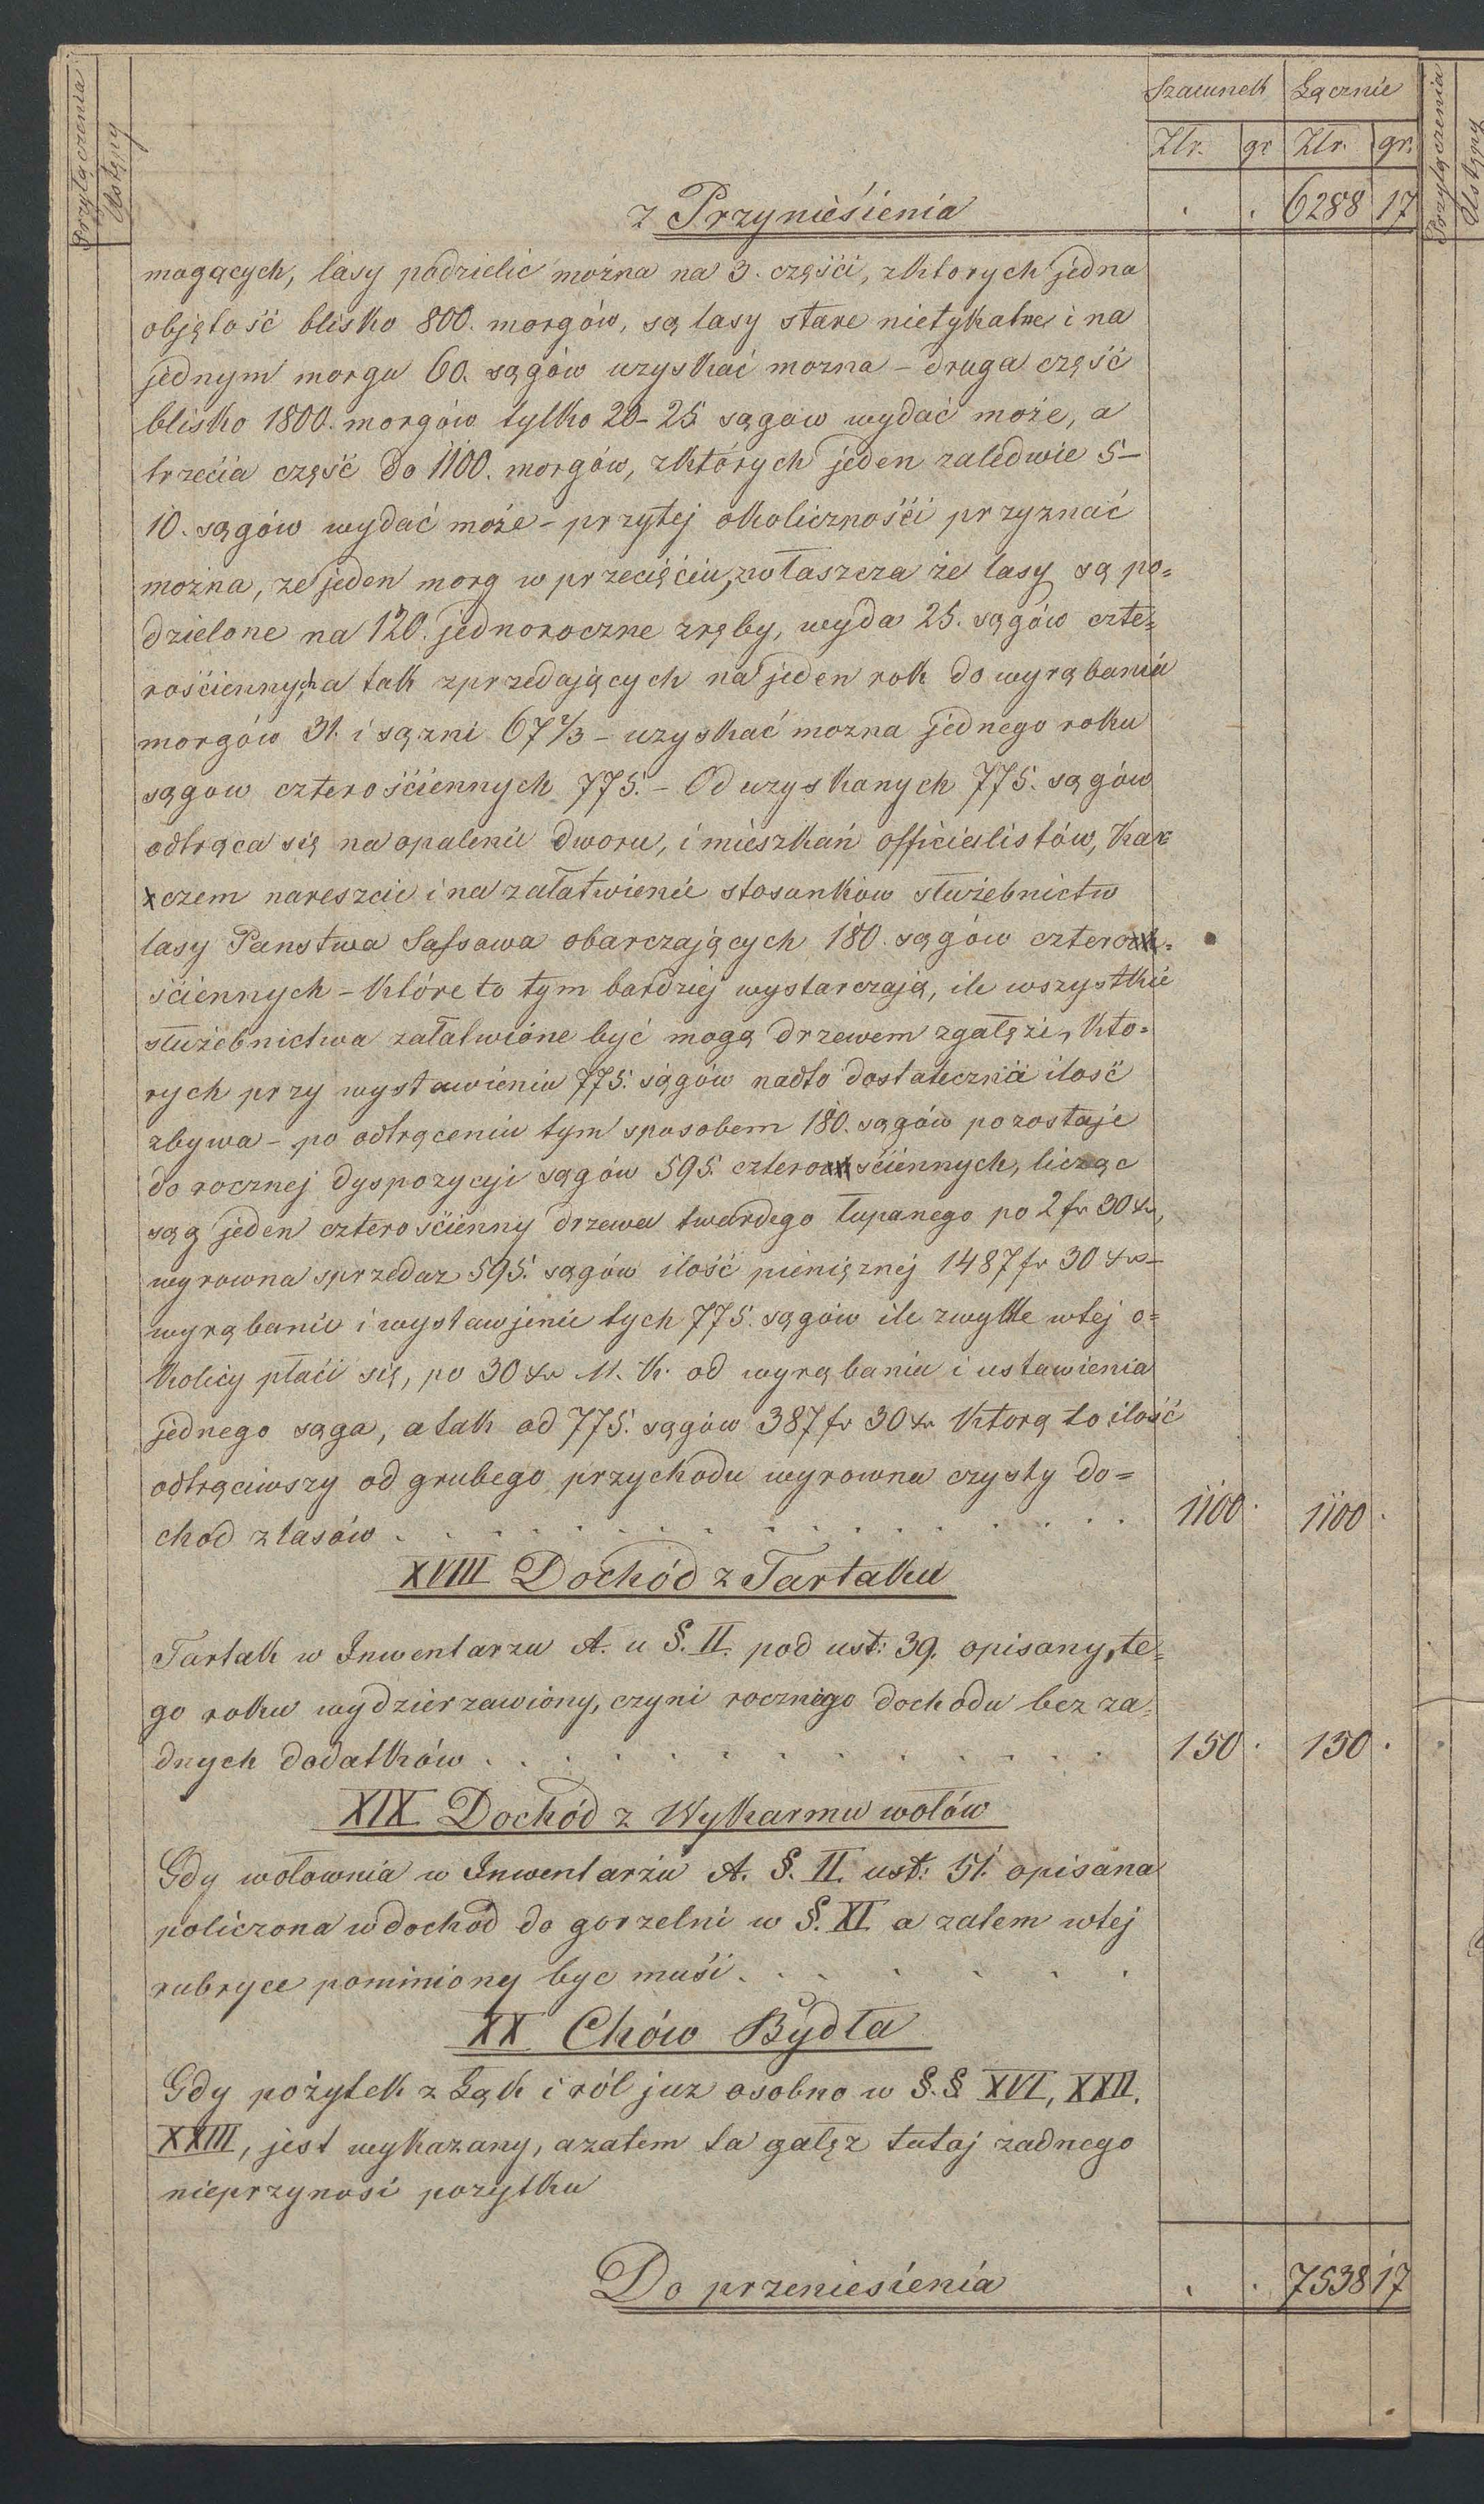 Przyłączenia
Ustępy
Szacunek Łącznie
Złr. gr Złr. gr.
z Przyniesienia . . 6288 17
mogących, lasy podzielić można na 3. części, zktorych jedna
objętość blisko 800. morgów, są lasy stare nietykalne i na
jednym morgu 60. sągów uzyskać mozna – druga część
blisko 1800. morgów tylko 20–25 sągow wydać może, a
trzecia część do 1100. morgów, zktórych jeden zaledwie 5–
10. sągów wydać może – przytej okoliczności przyznać
można, ze jeden morg w przecięciu, zwłaszcza że lasy są po=
dzielone na 120. jednoroczne zręby, wyda 25. sągów czte=
rościennych a tak zprzedających na jeden rok do wyrąbania
morgów 31. i sązni 67 2/3 – uzyskać mozna jednego roku
sągow czterościennych 775. – Od uzyskanych 775. sągów
odtrąca się na opalenie dworu, i mieszkań officialistów, kar
czem nareszcie i na załatwienie stosunków służebnictw
lasy Panstwa Sassowa obarczających 180. sągów cztero=
ściennych – które to tym bardziej wystarczają, ile wszystkie
służebnictwa załatwione być mogą drzewem zgałęzi, kto=
rych przy wystawieniu 775. sągów nadto dostateczna ilość
zbywa – po odtrąceniu tym sposobem 180. sągów pozostaje
do rocznej dyspozycyi sągów 595. czterościennych, licząc
sąg jeden czterościenny drzewa twardego łupanego po 2 fr 30 xr,
wyrowna sprzedaz 595. sągów ilość pieniężnej 1487 fr 30 xr –
wyrąbanie i wystawienie tych 775. sągów ile zwykle wtej o=
kolicy płaci się, po 30 xr M. K. od wyrąbania i ustawienia
jednego sąga, a tak od 775. sągów 387 fr 30 xr ktorą to ilość
odtrąciwszy od grubego przychodu wyrowna czysty do=
chod z lasów . . . . . . . . . . . . . . . . . . 1100 . 1100 .
XVIII Dochód z Tartaku
Tartak w Inwentarzu A. u §. II. pod ust: 39. opisany, te=
go roku wydzierzawiony, czyni rocznego dochodu bez za=
dnych dodatków . . . . . . . . . . . . . . . 150 . 150 .
XIX Dochód z Wykarmu wołów
Gdy wołownia w Inwentarzu A. §. II. ust: 51. opisana
policzona w dochód do gorzelni w §. XI a zatem wtej
rubryce pominiony byc musi . . . . . . .
XX Chów Bydła
Gdy pożytek z Łąk i ról juz osobno w §.§ XVI, XXII.
XXIII, jest wykazany, azatem ta gałęz tutaj zadnego
nieprzynosi pozytku
Do przeniesienia . . 7538 17
Przyłączenia
Ustępy